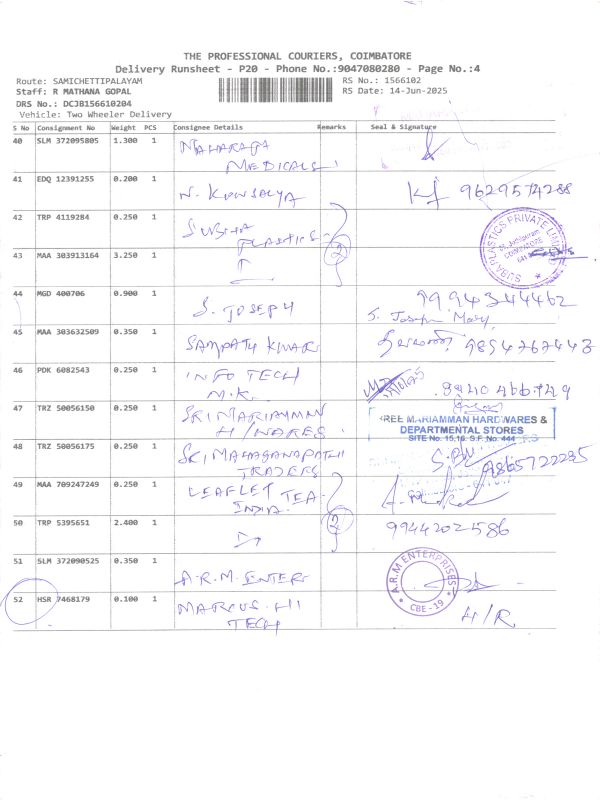 THE PROFESSIONAL COURIERS, COIMBATORE
Delivery Runsheet - P20 - Phone No.:9047080280 - Page No.:4
Route: SAMICHETTIPALAYAM RS No.: 1566102
Staff: R MATHANA GOPAL RS Date: 14-Jun-2025
DRS No.: DCJB156610204
Vehicle: Two Wheeler Delivery
S No Consignment No Weight PCS Consignee Details Remarks Seal & Signature
40 SLM 372095805 1.300 1 MAHARAJA
MEDICALS
41 EDQ 12391255 0.200 1 N. KOWSALYA 9629574288
42 TRP 4119284 0.250 1 SUBHA
PLASTICS 2
SUBA PLASTICS PRIVATE LIMITED
COIMBATORE
43 MAA 303913164 3.250 1
44 MGD 400706 0.900 1 S. JOSEPH 9994344462
S. Joseph Mary
45 MAA 303632509 0.350 1 SAMPATH KUMAR 9854767443
46 PDK 6082543 0.250 1 INFO TECH
M.K.
47 TRZ 50056150 0.250 1 SRI MARIAMMN
H/WARES
SREE MARIAMMAN HARDWARES &
DEPARTMENTAL STORES
SITE No. 15,16. S.F. No. 444
48 TRZ 50056175 0.250 1 SRI MAHAGANAPATHI
TRADERS 9865722235
49 MAA 709247249 0.250 1 LEAFLET TEA
INDIA 2
50 TRP 5395651 2.400 1 9944202586
51 SLM 372090525 0.350 1 A.R.M. ENTER
A.R.M ENTERPRISES
CBE-19
52 HSR 7468179 0.100 1 MARCUS HI
TECH H/R